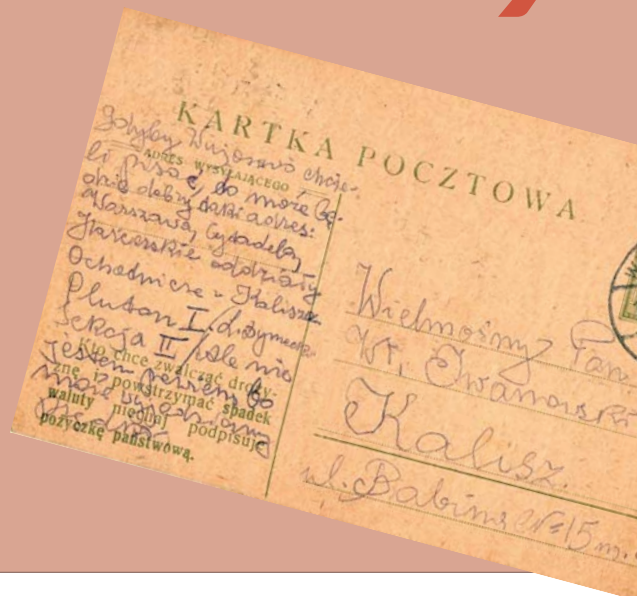 KARTKA POCZTOWA
ADRES WYSYŁAJĄCEGO
Gdyby Wujostwo chcie-
li pisać, to może bę-
dzie dobry taki adres:
Warszawa, Cytadela,
Harcerskie oddziały
Ochotnicze z Kalisza
Pluton I
sekcja II / ale nie
jestem pewien bo
może
Kto chce zwalczać droży-
znę i powstrzymać spadek
waluty niechaj podpisuje
pożyczkę państwową.
Wielmożny Pan
Wł. Iwanowski
Kalisz.
ul. Babina № 15 m.